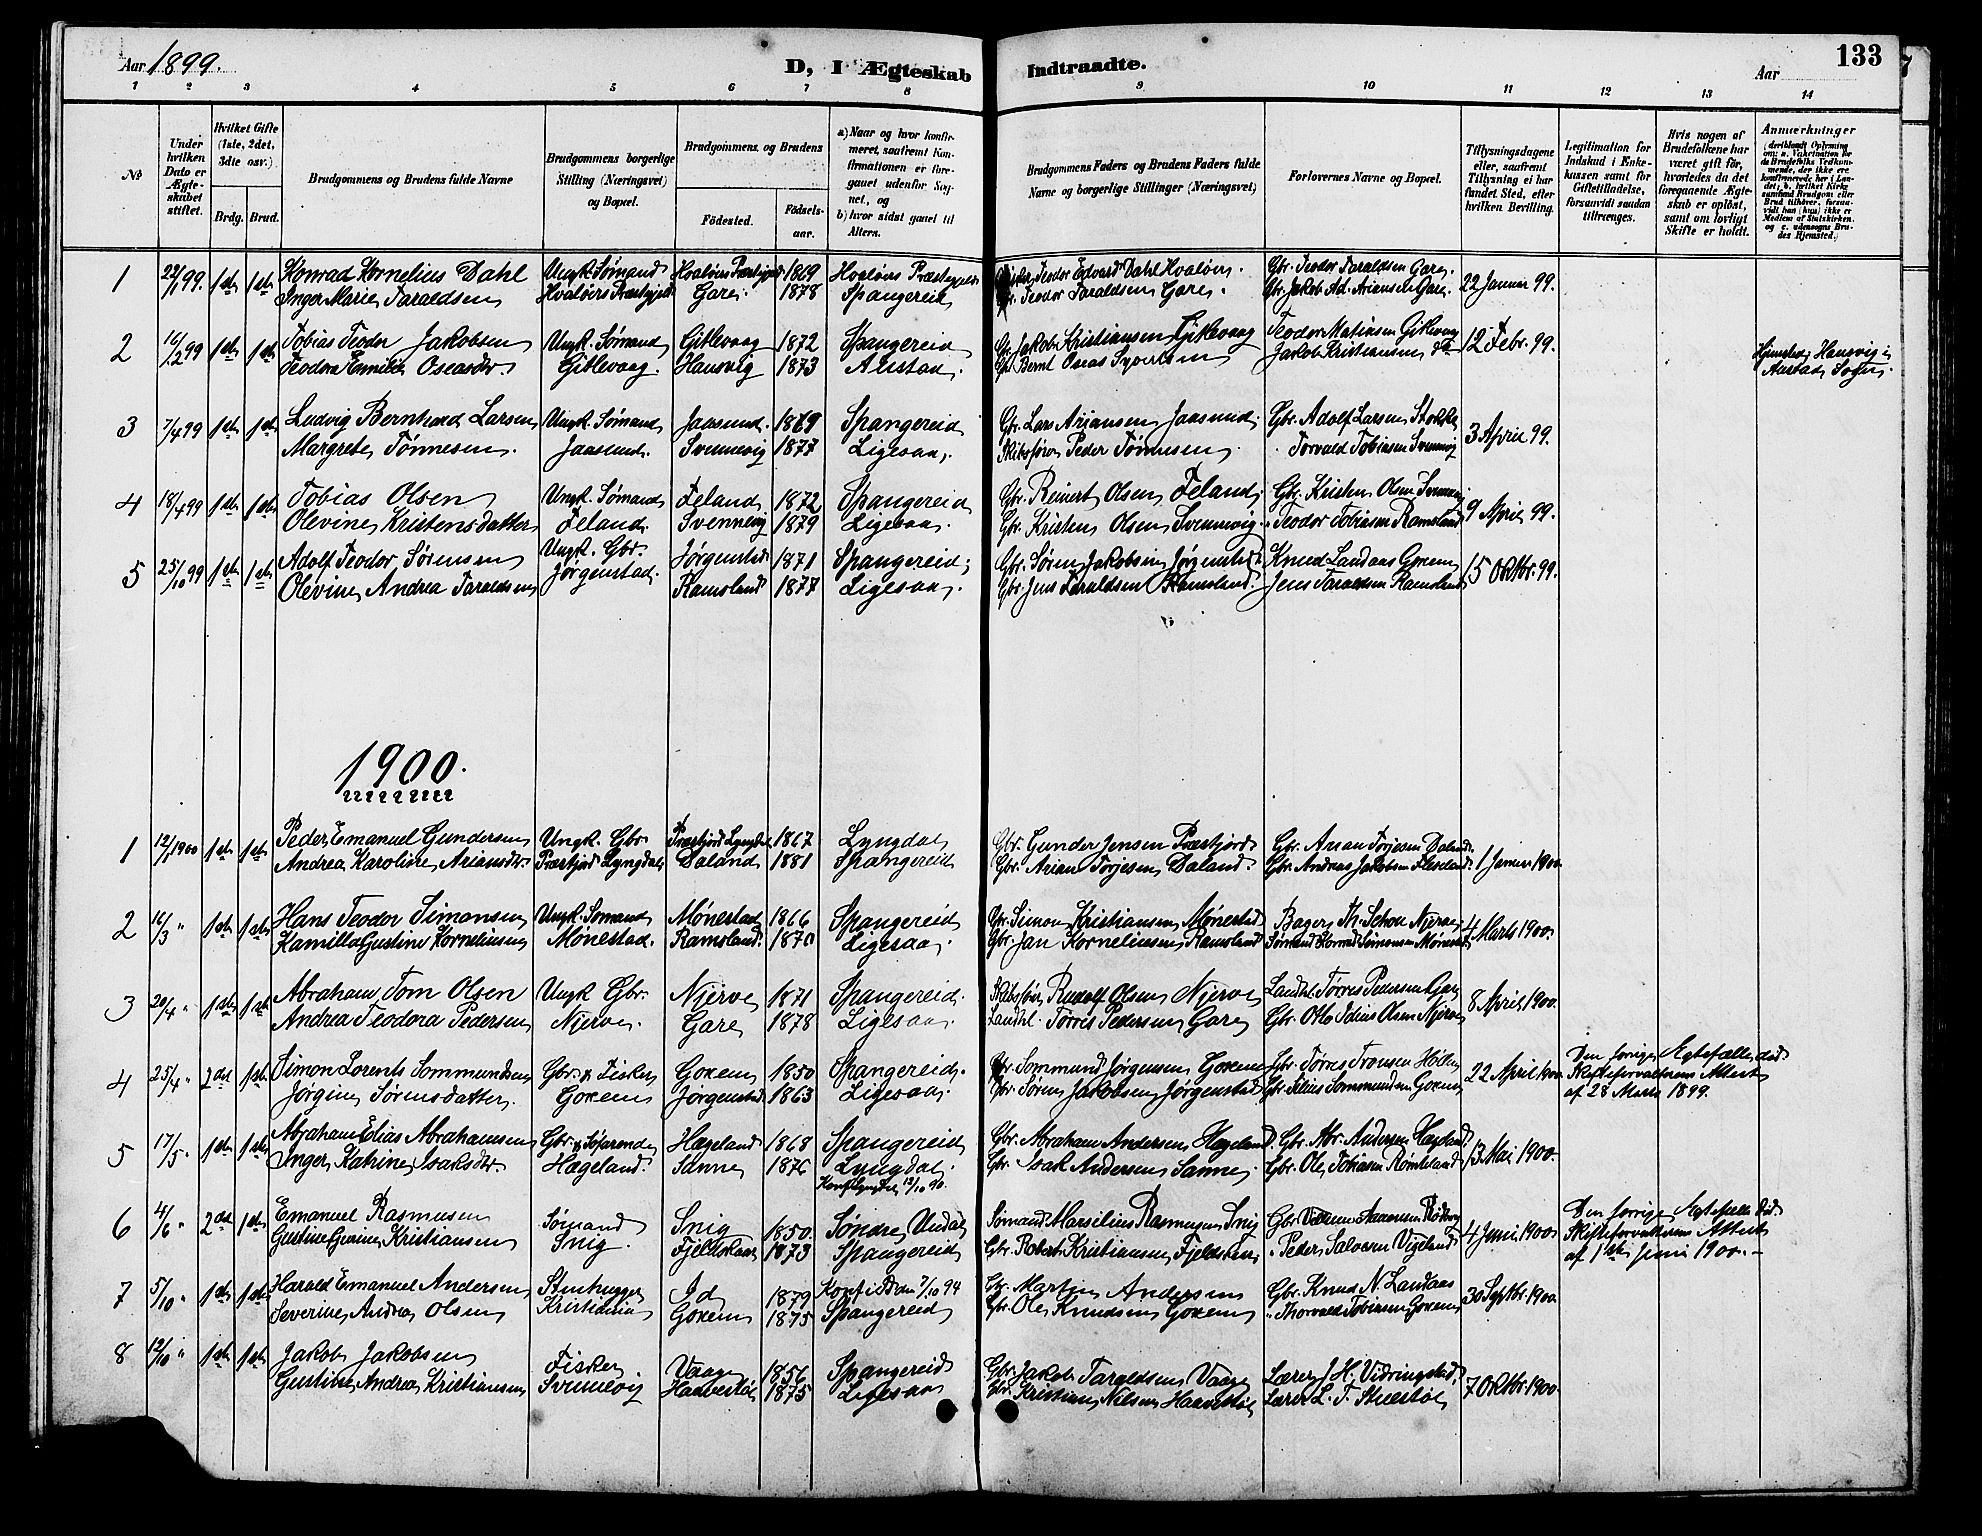 Aar 1899.
D, I Ægteskab Indtraadte.
133
Aar
1 2 3 4 5 6 7 8 9 10 11 12 13 14
No
Under hvilken Dato er Ægteskabet stiftet.
Hvilket Gifte (1ste, 2det, 3die osv.)
Brdg. Brud.
Brudgommens og Brudens fulde Navne
Brudgommens borgerlige Stilling (Næringsvei) og Bopæl.
Brudgommens og Brudens
Födested.
Födselsaar.
a) Naar og hvor konfirmeret, saafremt Konfirmationen er foregaaet udenfor Sognet, og
b) hvor sidst gaaet til Alters.
Brudgommens Faders og Brudens Faders fulde Navne og borgerlige Stillinger (Næringsvei)
Forlovernes Navne og Bopæl.
Tillysningsdagene eller, saafremt Tillysning ei har fundet Sted, efter hvilken Bevilling.
Legitimation for Indskud i Enkekassen samt for Giftetilladelse, forsaavidt saadan tiltrænges.
Hvis nogen af Brudefolkene har været gift før, hvorledes da det foregaaende Ægteskab er opløst, samt om lovligt Skifte er holdt.
Anmærkninger (deriblandt Oplysning om: a. Vakcination for de Brudefolks Vedkommende, der ikke ere konfirmerede her i Landet; b. hvilket Kirkesamfund Brudgom eller Brud tilhører, forsaavidt han (hun) ikke er Medlem af Statskirken, og c. udensogns Brudes Hjemsted.)
1 22/1 99. 1ste 1ste Konrad Kornelius Dahl Ungk. Sømand Hvaløers Præstegjeld 1869 Hvaløers Præstegjeld Teodor Edvard Dahl Hvaløer. Gbr. Teodor Taraldsen Gare. 22 Januar 99.
Inger Marie Taraldsen Hvaløers Præstegjeld Gare. 1878 Spangereid Gbr. Teodor Taraldsen Gare. Gbr. Jakob Ad. Ariansen Gare.
2 16/2 99 1ste 1ste Tobias Teodor Jakobsen Ungk. Sømand Gitlevaag 1872 Spangereid Gbr. Jakob Kristiansen Gitlevaag Teodor Matiasen Gitlevaag 12 Febr. 99.
Teodora Kamilia Oseasdtr. Gitlevaag. Hausvig 1873 Austad. Gbr. Bernt Oseas Jakob Kristiansen do Hjemsted Hausvig i Austad Sogn.
3 7/4 99 1ste 1ste Ludvig Bernhard Larsen Ungk. Sømand Jaasund. 1869 Spangereid Gbr. Lars Ariansen Jaasund Gbr. Adolf Larsen Stokke 3 April 99.
Margrete Tønnesen. Jaasund. Svennevig 1877 Ligesaa. Skibsfører Peder Tønnesen Torvald Tobiasen Svennevig
4 18/4 99 1ste 1ste Tobias Olsen Ungk. Sømand Feland 1872 Spangereid Gbr. Reinert Olsen Feland. Gbr. Kristen Olsen Svennevig 9 April 99.
Olevine Kristensdatter Feland. Svennevig 1879 Ligesaa. Gbr. Kristen Olsen Svennevig. " Teodor Tobiasen Ramsland
5 25/10 99 1ste 1ste Adolf Teodor Sørensen Ungk. Gbr. Jørgenstad 1871 Spangereid; Gbr. Søren Jakobsen Jørgenstad. Knud Landaas Goxem 15 Oktbr. 99.
Olevine Andrea Taraldsen Jørgenstad. Ramsland 1877 Ligesaa. Gbr. Jens Taraldsen Ramsland. Jens Taraldsen Ramsland
1900.
1 12/1 1900 1ste 1ste Peder Emanuel Gundersen Ungk. Gbr Præstfjord Lyngdal 1867 Lyngdal Gbr. Gunder Jensen Præstfjord Gbr. Arian Torjesen Daland. 1 Januar 1900
Andrea Karoline Ariansdtr. Præstfjord Lyngdal Daland 1881 Spangereid Gbr. Arian Torjesen Daland. Gbr. Andreas Jakobsen Fleseland
2 16/3 " 1ste 1ste Hans Teodor Simonsen Ungk. Sømand Mønestad 1866 Spangereid Gbr. Simon Kristiansen Mønestad Bager Th. Schou Njerve 4 Marts 1900.
Kamilla Gustine Korneliusen Mønestad. Ramsland. 1870 Ligesaa. Gbr. Jan Korneliusen Ramsland Sømand Konrad Simonsen Mønestad
3 20/4 " 1ste 1ste Abraham Tom Olsen Ungk Gbr. Njerve 1871 Spangereid. Skibsfører Rudolf Olsen Njerve Landhl. Tørres Pedersen Gare 8 April 1900.
Andrea Teodora Pedersen Njerve. Gare 1878 Ligesaa. Landhl. Tørris Pedersen Gare Gbr. Otto Olsen Njerve
4 25/4 " 2det 1ste Simon Lorents Sommundsen Gbr. & Fisker Goxem 1850 Spangereid. Gbr. Sommund Jørgensen Goxem Gbr. Tørres Tronsen Hølen 22 April 1900. Den forrige Ægtefælle død
Jørgine Sørensdatter. Goxem Jørgenstad 1863 Ligesaa. Gbr. Søren Jakobsen Jørgenstad Gbr. Sommundsen Goxem Skifteforvalterens Attest af 28 Marts 1899.
5 17/5 " 1ste 1ste Abraham Elias Abrahamsen Gbr. & Søfarende Hageland 1868 Spangereid Gbr. Abraham Andersen Hageland. Gbr. Abr. Andersen Hageland 13 Mai 1900.
Inger Katrine Isaksdtr. Hægeland. Sanne 1876 Lyngdal. Gbr. Isak Andersen Sanne. Gbr. Ole Tobiasen
Konf. Lyngdal 12/10 90.
6 4/6 " 2det 1ste Emanuel Rasmusen Sømand Snig 1850. Søndre Undal Sømand Marsilius Rasmusen Snig Gbr 4 Juni 1900 Den forrige Ægtefælle død
Gustine Kristiansen Snig. Fjeldskaar 1873 Spangereid Gbr. Robert Kristiansen Fjeldskaar " Peder Salvesen Vigeland Skifteforvalterens Attest af 1ste Juni 1900.
7 5/10 " 1ste 1ste Harald Emanuel Andersen Stenhugger Id 1879 Konf i Id den 7/10 94 Gbr. Martin Andersen Gbr. Knud N. Landaas 30 Septbr. 1900.
Severine Andrea Olsen Kristiania Goxem 1875 Spangereid Gbr. Ole Knudsen Goxem " Thorvald Tobiasen Goxem
8 12/10 " 1ste 1ste Jakob Jakobsen Fisker Vaage 1856 Spangereid Gbr. Jakob Taraldsen Vaage Lærer J. H. Vidringstad, 7 Oktbr. 1900
Gustine Andrea Kristiansen Svennevig Haavestøl 1875 Ligesaa Gbr. Kristian Nilsen Haavestøl Lærer L. T. Stuestøl